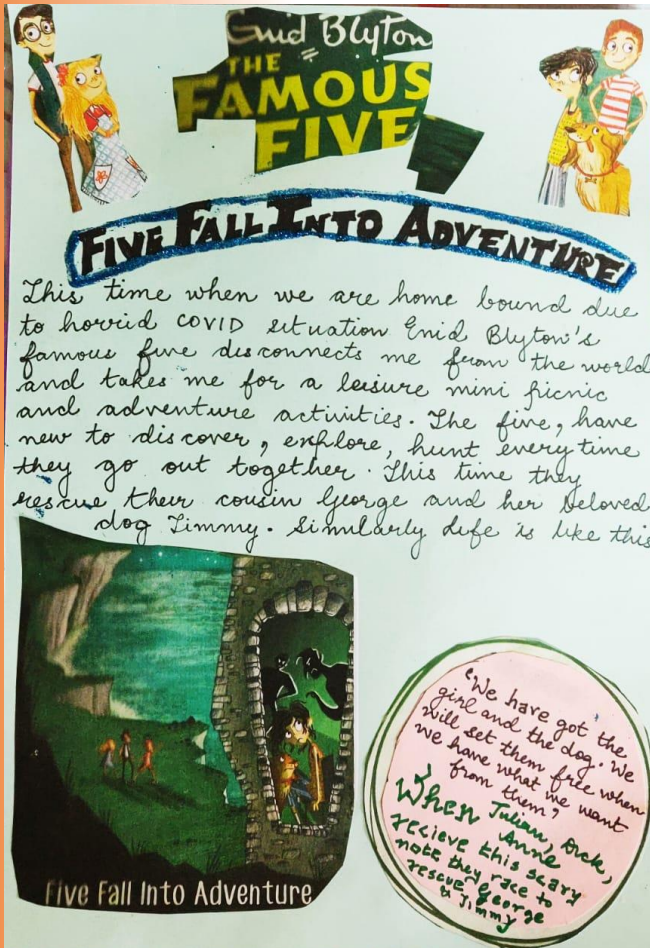 Enid Blyton
THE
FAMOUS
FIVE
FIVE FALL INTO ADVENTURE
This time when we are home bound due
to horrid COVID situation Enid Blyton's
famous five disconnects me from the world
and takes me for a leisure mini picnic
and adventure activities. The five, have
new to discover, explore, hunt everytime
they go out together. This time they
rescue their cousin George and her beloved
dog Timmy. Similarly life is like this
Five Fall Into Adventure
"We have got the
girl and the dog. We
will set them free when
we have what we want
from them"
When Julian, Dick,
Anne
recieve this scary
note they race to
rescue George
& Timmy